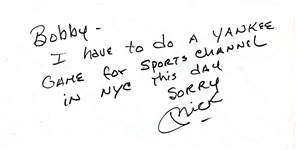 Bobby-
I have to do a Yankee
Game for Sports Channel
in NYC this day
Sorry
Mick